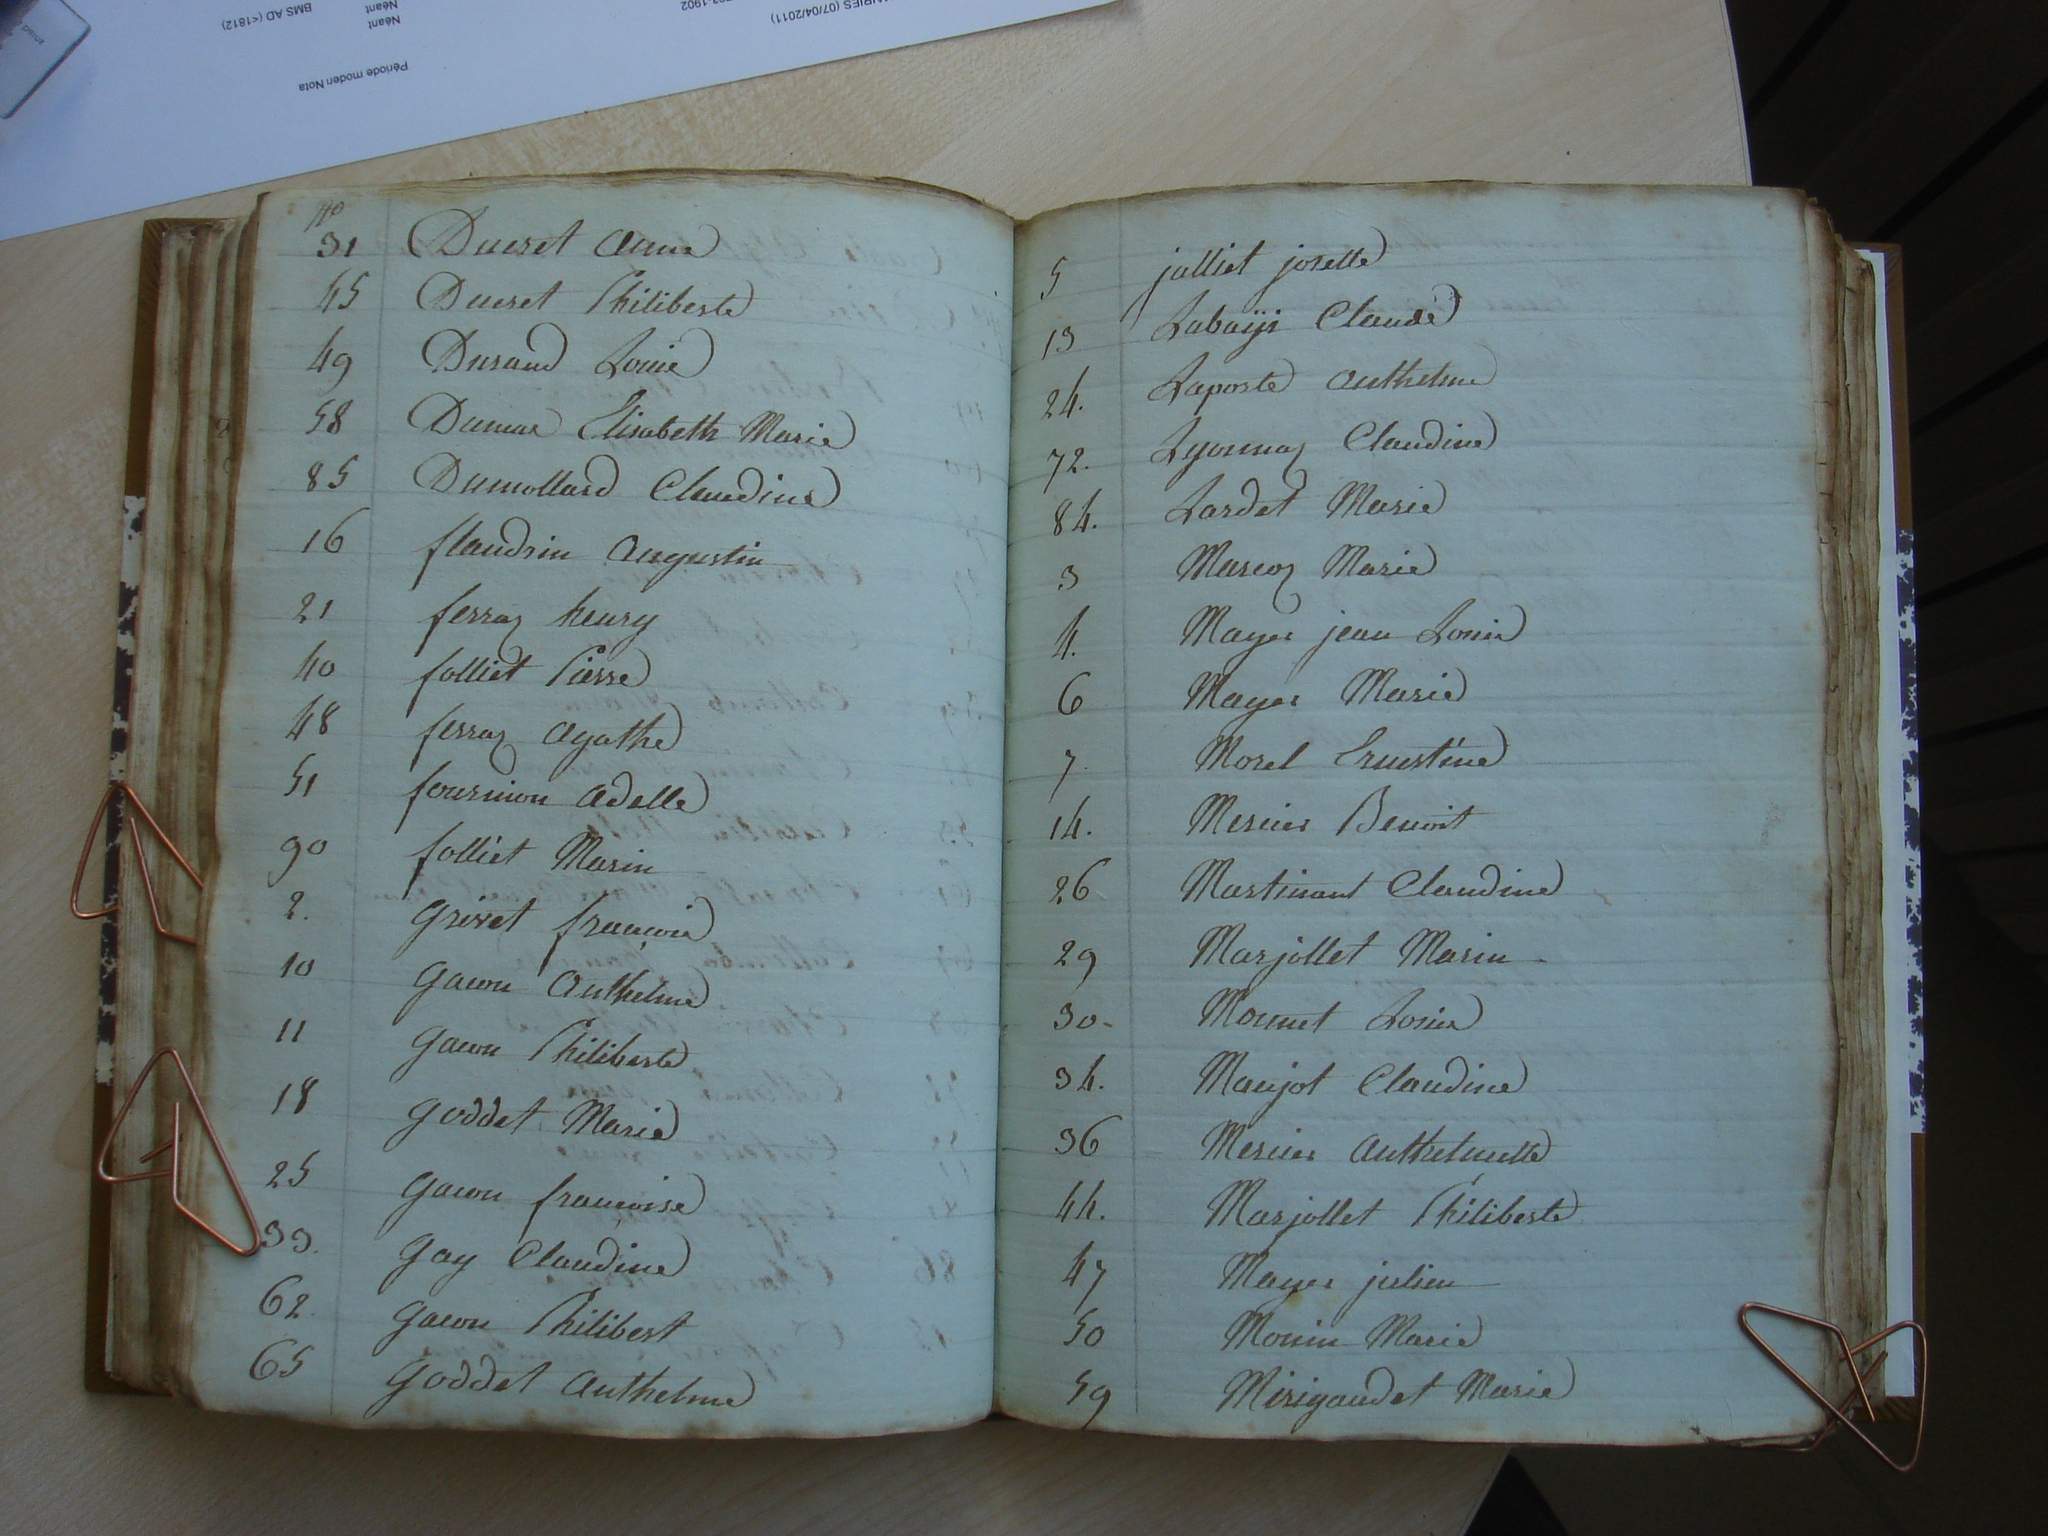 BMS AD (<1812)
Néant
Néant
Période moden Nota
1902
(07/04/2011)
No
31 Ducret Anne
45 Ducret Philiberte
49 Durand Louise
58 Dumas Elisabeth Marie
85 Dumollard Claudine
16 flandrin Augustin
21 ferraz henry
40 folliet Pierre
48 ferraz Agathe
51 fournion Adelle
90 folliet Marin
2. Grivet francois
10 Gacon Anthelme
11 Gacon Philiberte
18 Goddet Marie
25 Gacon francoise
33. Gay Claudine
62. Gacon Philibert
65 Goddet Anthelme
5 julliet josette
13 Claude
24. Laporte Anthelme
72. Lyonnaz Claudine
84. Lardet Marie
3 Marcoz Marie
4. Mayer jean Louis
6 Mayer Marie
7. Morel Ernestine
14. Mercier Benoit
26 Martinant Claudine
29 Marjollet Marin
30 Monnet Louis
34. Maujot Claudine
36 Mercier Anthelmette
44. Marjollet Philiberte
47 Mayer julien
50 Monin Marie
59 Mirigaudet Marie